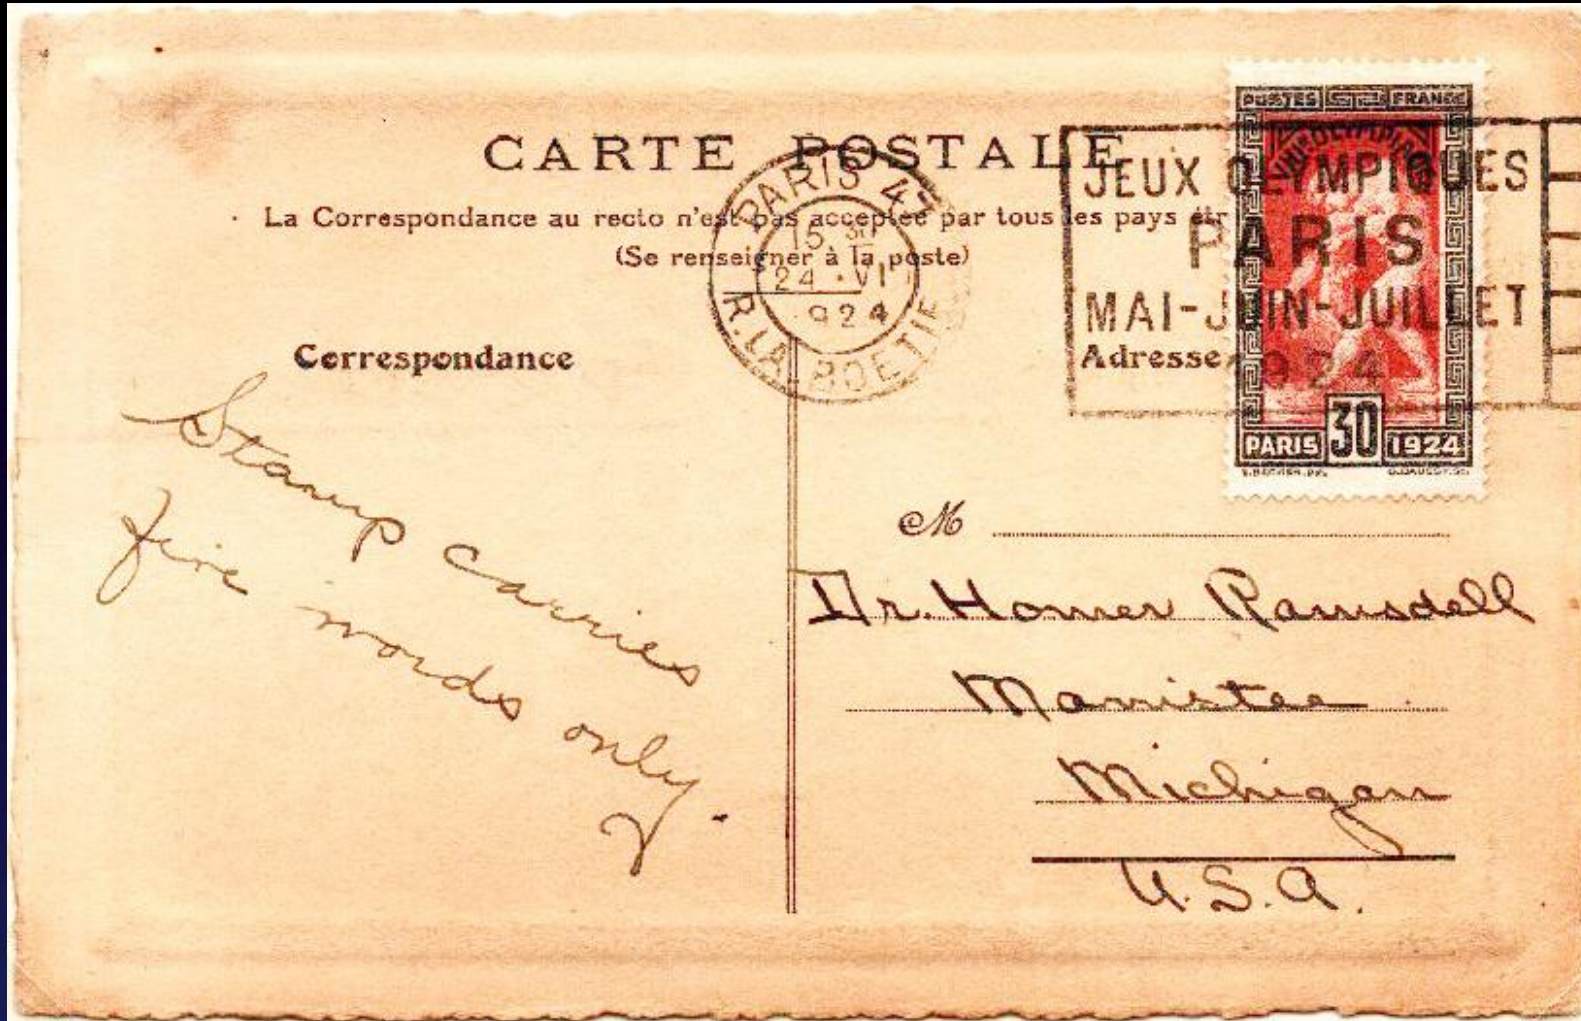 CARTE POSTALE
La Correspondance au recto n'est pas acceptée par tous les pays étr
(Se renseigner à la poste)
PARIS
15 30
24 · VI
924
R. LA BOETIE
POSTES FRANCE
JEUX OLYMPIQUES
PARIS
MAI-JUIN-JUILLET
1924
PARIS 30 1924
Correspondance
Adresse
Stamp carries
five words only.
M
Dr. Homer Ramsdell
Manistee
Michigan
U.S.A.